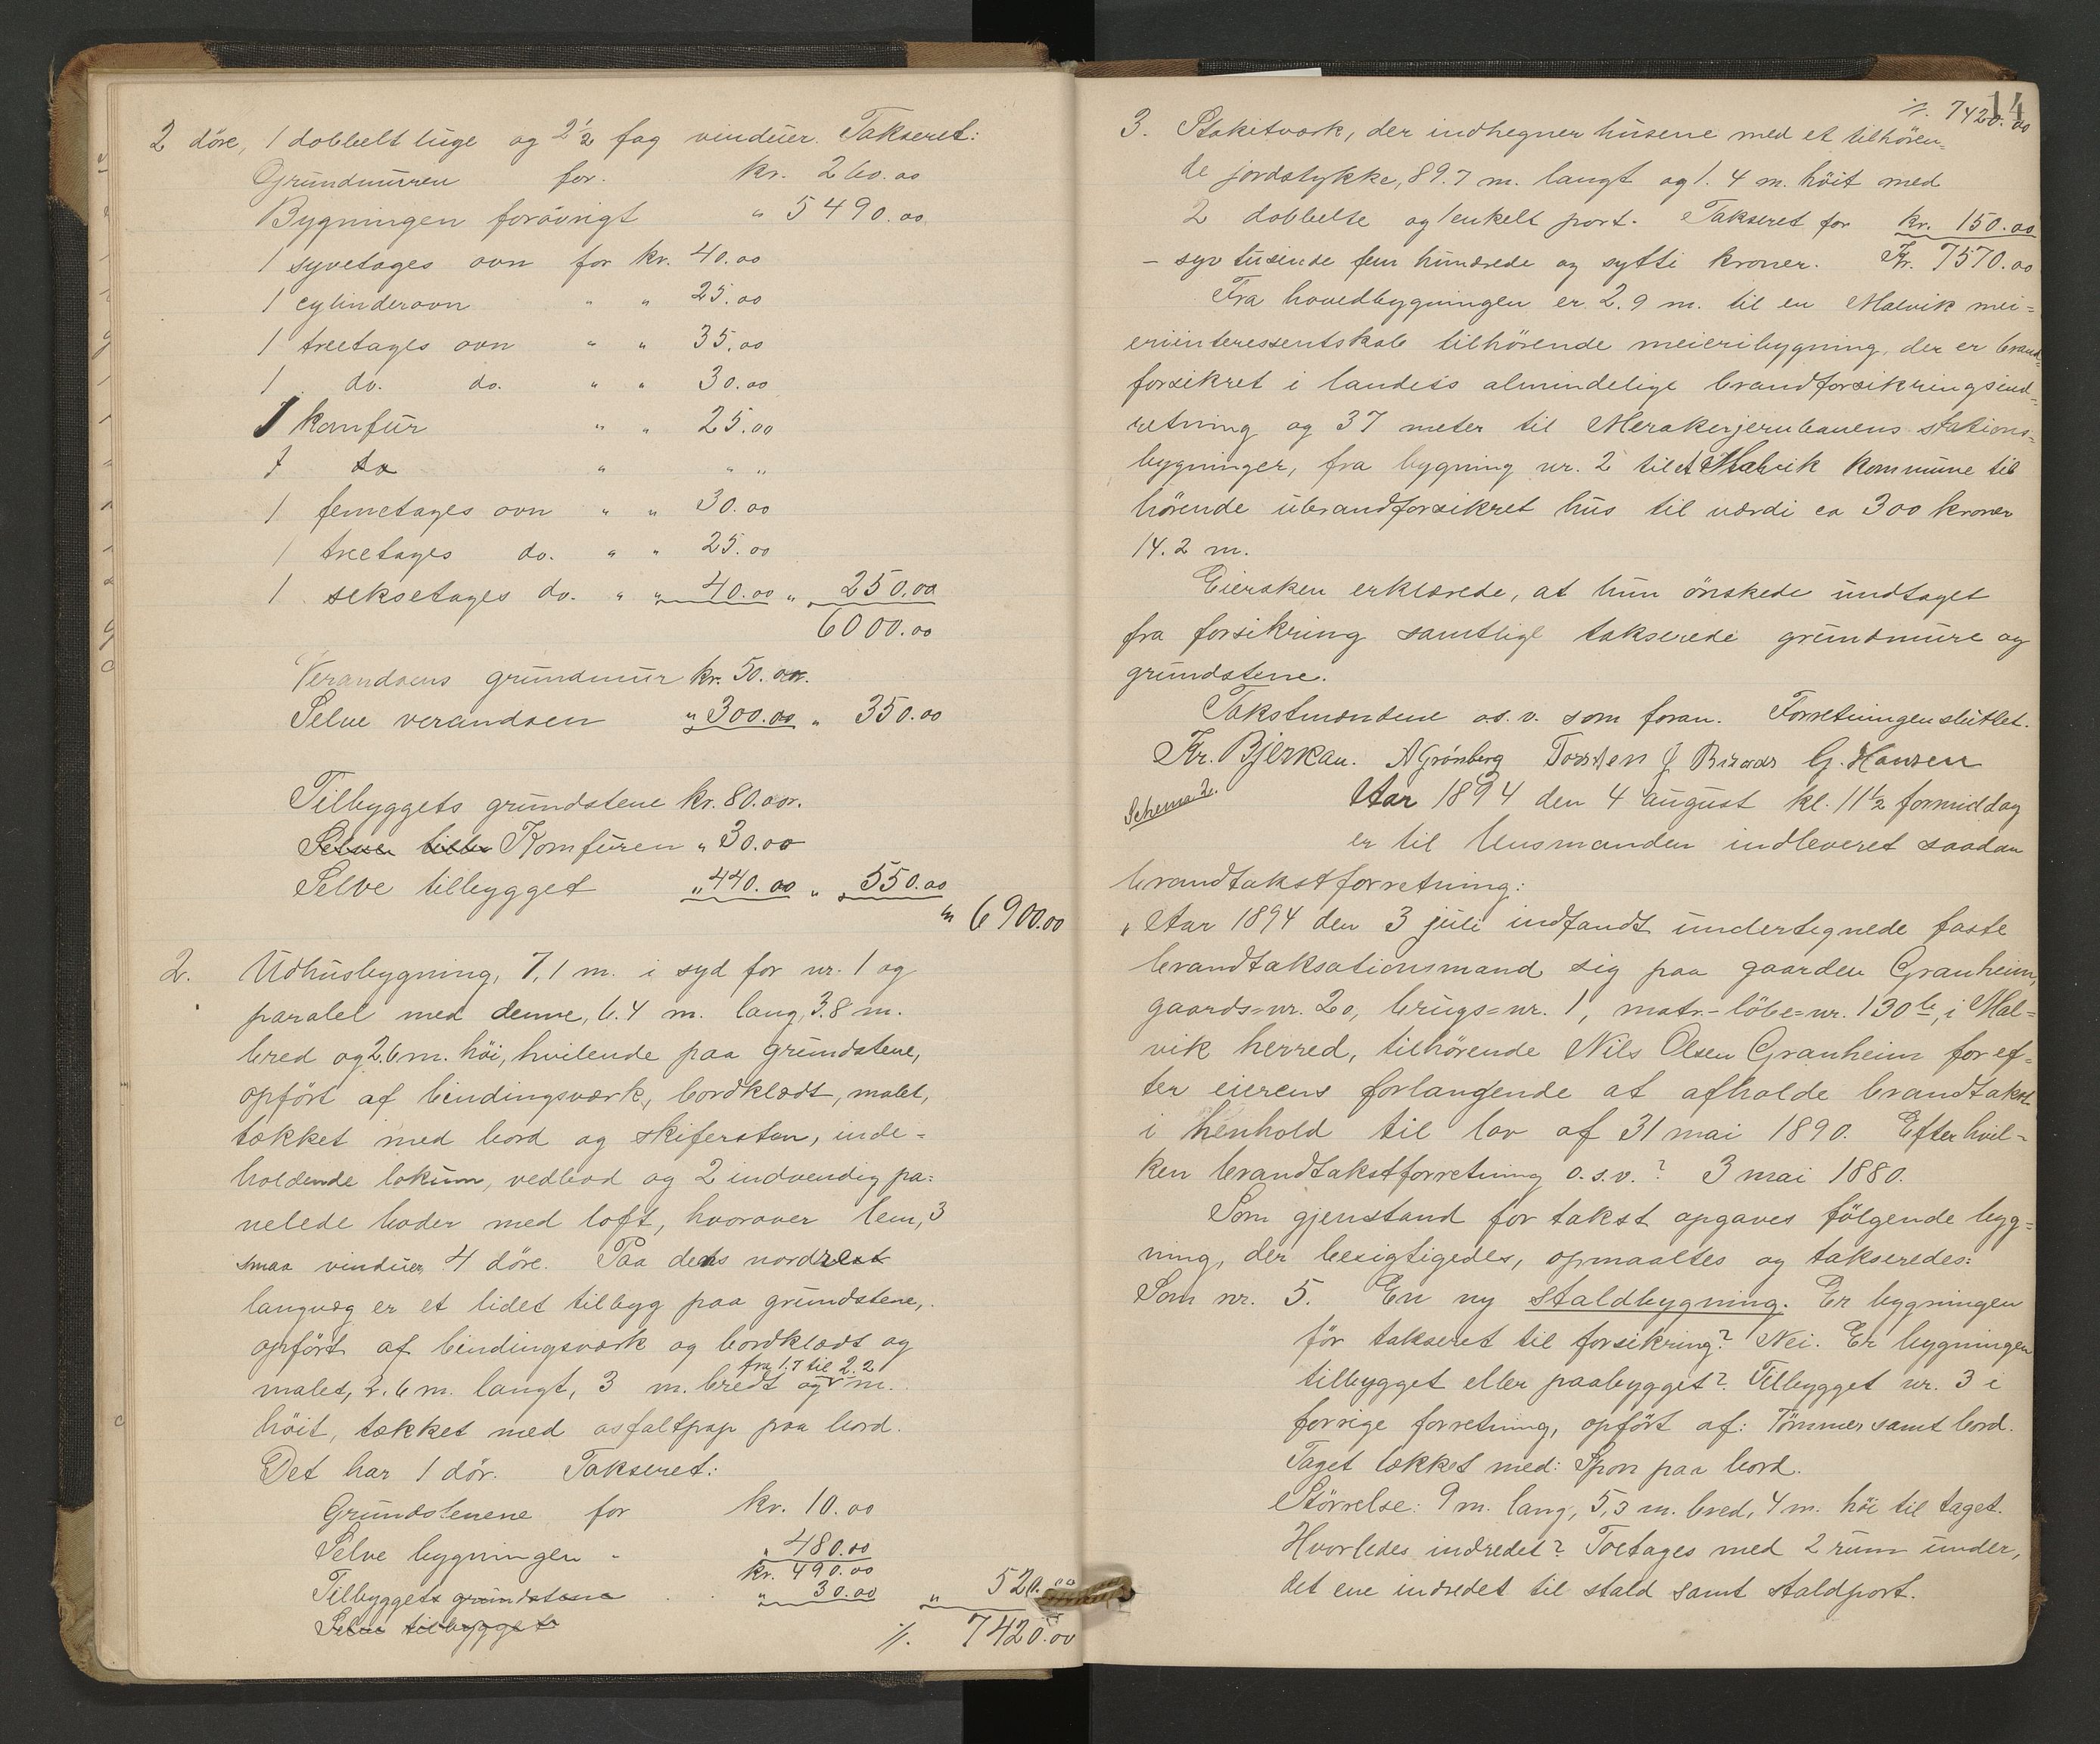 2 döre, 1 dobbelt luge og 2½ fag vinduer. Takseret:
Grundmuren for. kr. 260.00
Bygningen forövrigt " 5490.00
1 syvetages ovn for kr. 40.00
1 cylinderovn " " 25.00
1 treetages ovn " " 35.00
1 do. do. " " 30.00
1 komfur " " 25.00
1 do " " "
1 femetages ovn " " 30.00
1 treetages do. " " 25.00
1 seksetages do. " " 40.00 " 250.00
6000.00
Verandaens grundmur kr. 50.00.
Selve verandaen " 300.00 " 350.00
Tilbyggets grundstene kr. 80.00.
Selve tilby Komfuren " 30.00
Selve tilbygget " 440.00 " 550.00
" 6900.00
2. Udhusbygning, 7,1 m. i syd for nr. 1 og
paralel med denne, 6.4 m. lang, 3.8 m.
bred og 2.6 m. höi, hvilende paa grundstene,
opfört af bindingsværk, bordklædt, malet,
tækket med bord og skifersten, inde=
holdende lokum, vedbod og 2 indvendig pa=
nelede boder med loft, hvorover lem, 3
smaa vinduer, 4 döre. Paa dens nordre
langvæg er et lidet tilbyg paa grundstene,
opfört af bindingsværk og bordklædt og
malet, 2.6 m. langt, 3 m. bredt og fra 1.7 til 2.2 m.
höit, tækket med asfaltpap paa bord.
Det har 1 dör. Takseret:
Grundstenene for kr. 10.00
Selve bygningen " " 480.00
kr. 490.00
Tilbygget grundstene " 30.00 " 520.00
Selve tilbygget
%. 7420.00
14
%. 7420.00
3. Stakitværk, der indhegner husene med et tilhören=
de jordstykke, 89.7 m. langt og 1.4 m. höit med
2 dobbelte og 1 enkelt port. Takseret for kr. 150.00
– syv tusinde fem hundrede og sytti kroner. Kr. 7570.00
Fra hovedbygningen er 2.9 m. til en Malvik mei=
eriinteressentskab tilhörende meieribygning, der er brand=
forsikret i landets almindelige brandforsikringsind=
retning og 37 meter til Merakerjernbanens stations=
bygninger, fra bygning nr. 2 til et Malvik kommune til
hörende ubrandforsikret hus til værdi ca 300 kroner
14.2 m.
Eiersken erklærede, at hun önskede undtaget
fra forsikring samtlige takserede grundmure og
grundstene.
Takstmændene o.s.v. som foran. Forretningen sluttet.
Kr. Bjerkan. A Grönberg Torsten J G. Hansen
Schema 2. Aar 1894 den 4 august kl. 11½ formiddag
er til lensmanden indleveret saadan
brandtakstforretning:
"Aar 1894 den 3 juli indfandt undertegnede faste
brandtaksationsmænd sig paa gaarden Granheim,
gaards=nr. 20, brugs=nr. 1, matr.-löbe=nr. 130 b, i Mal=
vik herred, tilhörende Nils Olsen Granheim for ef=
ter eierens forlangende at afholde brandtakst
i henhold til lov af 31 mai 1890. Efter hvil=
ken brandtakstforretning o.s.v.? 3 mai 1880.
Som gjenstand for takst opgaves fölgende byg=
ning, der besigtigedes, opmaaltes og takseredes:
Som nr. 5. En ny staldbygning. Er bygningen
för takseret til forsikring? Nei. Er bygningen
tilbygget eller paabygget? Tilbygget nr. 3 i
forrige forretning, opfört af: Tömmer samt bord.
Taget tækket med: Spon paa bord.
Störrelse: 9 m. lang, 5,3 m. bred, 4 m. höi til taget.
Hvorledes indredet? Toetages med 2 rum under,
det ene indredet til stald samt staldport.